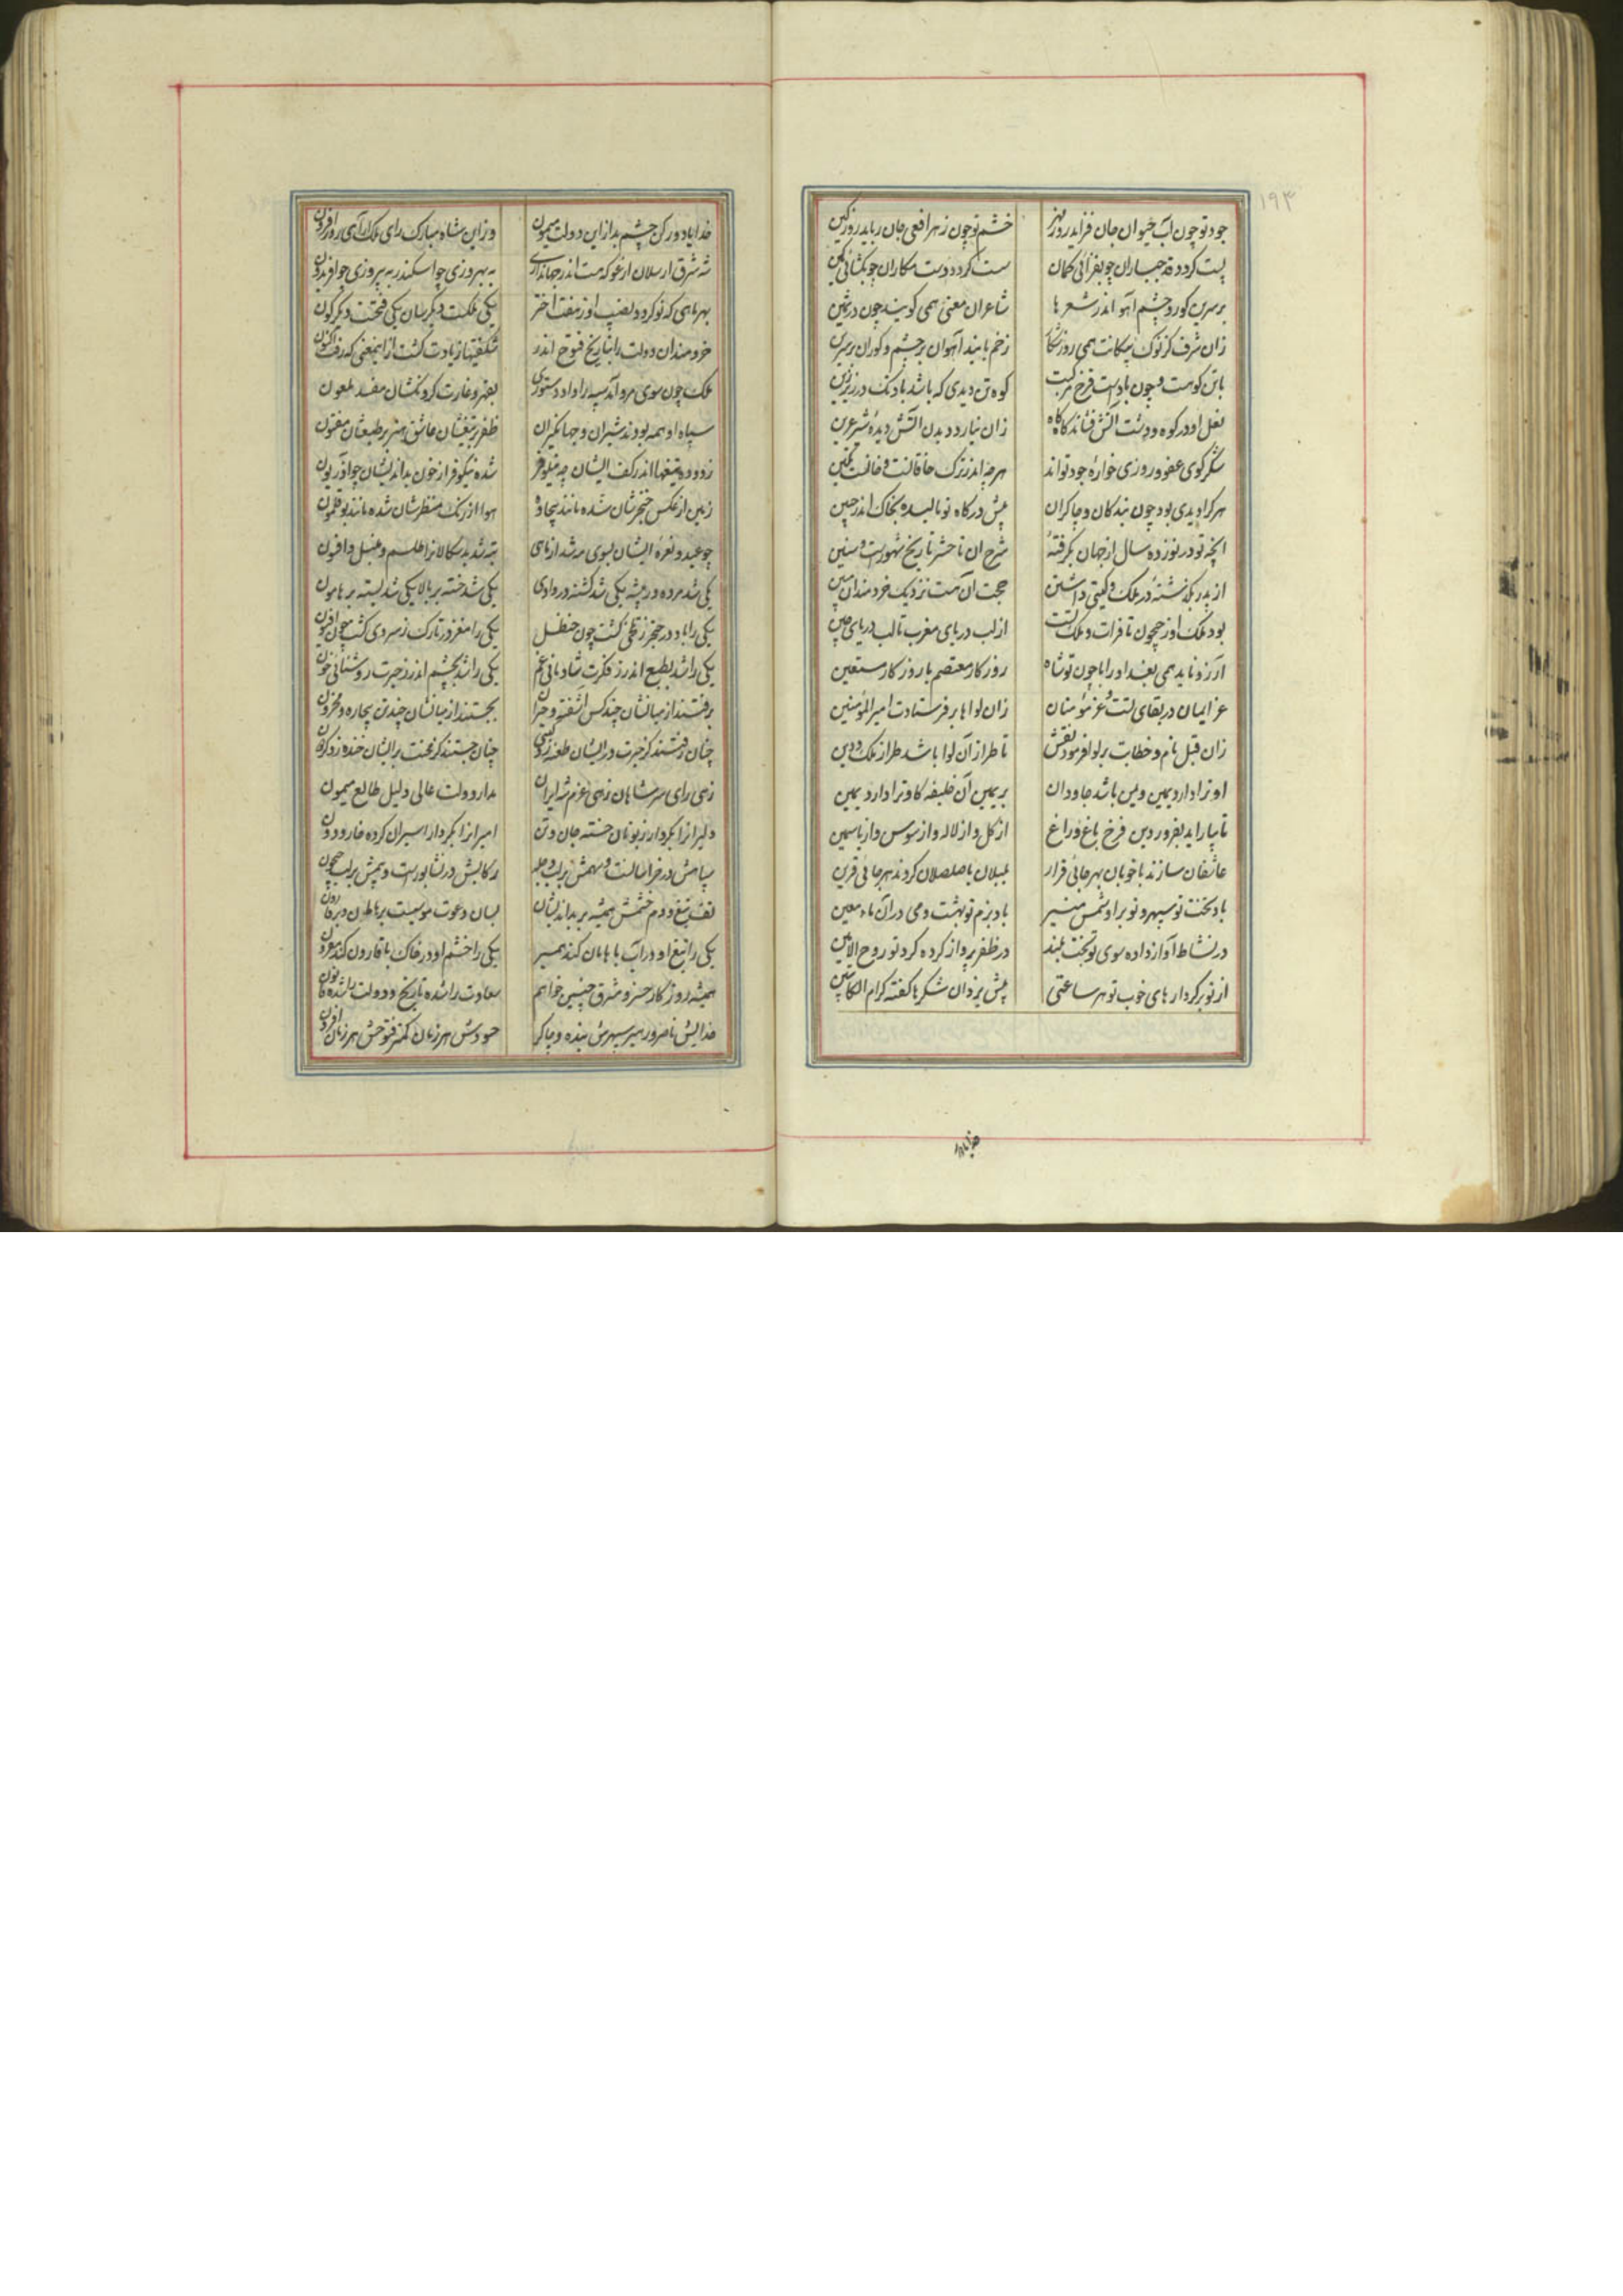 ۱۹۳
جود تو چون آب حیوان جان فزاید روز مهر خشم تو چون زهر افعی جان رباید روز کین
پست کردد قد جباران چو بفزائی کمان سست کردد دست مکاران چو بکشائی کمین
بر سرین کور و چشم آهو اندر شعرها شاعران معنی همی کویند چون در ثمین
زان شرف کز نوک پیکانت همی روز شکار زخم یابند آهوان بر چشم و کوران بر سرین
با تن کوهست و چون بادست فرخ مرکبت کوه تن دیدی که باشد باد تک در زیر زین
نعل او در کوه و دشت آتش فشاند کاه کاه زان نیارد دیدن آتش دیدهٔ شیر عرین
شکر کوی عفو و روزی خوارهٔ جود تواند هر چه اندر ترک خاقانست و خانست و تکین
هر کرا دیدی بود چون بندکان و چاکران پیش درکاه تو نالیده بخاک اندر جبین
آنچه تو در نوزده سال از جهان بکرفتهٔ شرح آن تا حشر تاریخ شهورست و سنین
از پدر بکذشتهٔ در ملک و کیتی داشتن حجت آن هست نزدیک خردمندان مبین
بود ملک او ز جیحون تا فرات و ملک تست از لب دریای مغرب تا لب دریای چین
آرزو ناید همی بغداد را با چون تو شاه روزکار معتصم با روزکار مستعین
عز ایمان در بقای تست و عز مؤمنان زان لواها بر فرستادت امیر المؤمنین
زان قبل نام و خطابت بر لوا فرمود نقش تا طراز آن لوا باشد طراز ملک و دین
او ترا دارد یمین و بس باشد جاودان بر یمین آن خلیفه کاو ترا دارد یمین
تا بیاراید بفروردین فرخ باغ و راغ از کل و از لاله و از سوسن و از یاسمین
عاشقان سازند با خوبان بهر جائی قرار بلبلان با صلصلان کردند هر جائی قرین
باد بختت تو سپهر و نو بر او شمس منیر باد بزم تو بهشت و می در آن ماء معین
در نشاط آواز داده سوی تو بخت بلند در ظفر پرواز کرده کرد تو روح الامین
از تو بر کردارهای خوب تو هر ساعتی پیش یزدان شکرها کفته کرام الکاتبین
خدایا دور کن چشم بد از این دولت میمون وز این شاه مبارک رای ملک آرای روزافزون
شه شرق ارسلان ارغو که هست اندر جهانداری به بهروزی چو اسکندر به پیروزی چو افریدون
بهر ماهی که نو کردد نصیب او ز هفت اختر یکی ملکت دیکرسان یکی فتحست دیکرکون
خردمندان دولت را بتاریخ فتوح اندر شکفتیها زیادت کشت از اینمعنی که رفت اکنون
ملک چون سوی مرو آمد سپه را داد دستوری بقهر و غارت کردنکشان مفسد ملعون
سپاه او همه بودند شیران و جهانکیران ظفر بر تیغشان عاشق هنر بر طبعشان مفتون
زدوده تیغها اندر کف ایشان چو نیلوفر شده نیلوفر از خون بداندیشان چو آذریون
زمین از عکس خنجرشان شده مانند بیجاده هوا از رنک منظرشان شده مانند بوقلمون
چو عید و نعرهٔ ایشان بسوی مه شد از ماهی تبه شد بدسکالانرا طلسم و تنبل و افسون
یکی شد مرده در بیشه یکی شد کشته در وادی یکی شد خسته بر بالا یکی شد بسته بر هامون
یکی را باد در حنجر ز تلخی کشت چون حنظل یکی را مغز در تارک ز سردی کشت چون افیون
یکی را شد بطبع اندر ز فکرت شادمانی غم یکی را شد بچشم اندر ز حیرت روشنائی خون
برفتند از میانشان چند کس آشفته و حیران بجستند از میانشان چند تن بیچاره و محزون
چنان رفتند کز حیرت در ایشان طعنه زد کیتی چنان جستند کز محنت بر ایشان خنده زد کردون
زهی رای سر شاهان زهی عزم شه ایران مدار دولت عالی دلیل طالع میمون
دلیرانرا بکردار زبونان خسته جان و تن امیرانرا بکردار اسیران کرده خار و دون
سپاهش در خراسانست و سهمش بر لب دجله رکابش در نشابورست و بیمش بر لب جیحون
تف تیغ و دم خشمش همیشه بر بداندیشان بسان دعوت موسیست بر هامان و بر قارون
یکی را تیغ او در آب با هامان کند همسر یکی را خشم او در خاک با قارون کند مقرون
همیشه روزکار خسرو مشرق چنین خواهم سعادت رانده تاریخ و دولت رانده قانون
خدایش ناصر و رهبر سپهرش بنده و چاکر حسودش هر زمان کمتر فتوحش هر زمان افزون